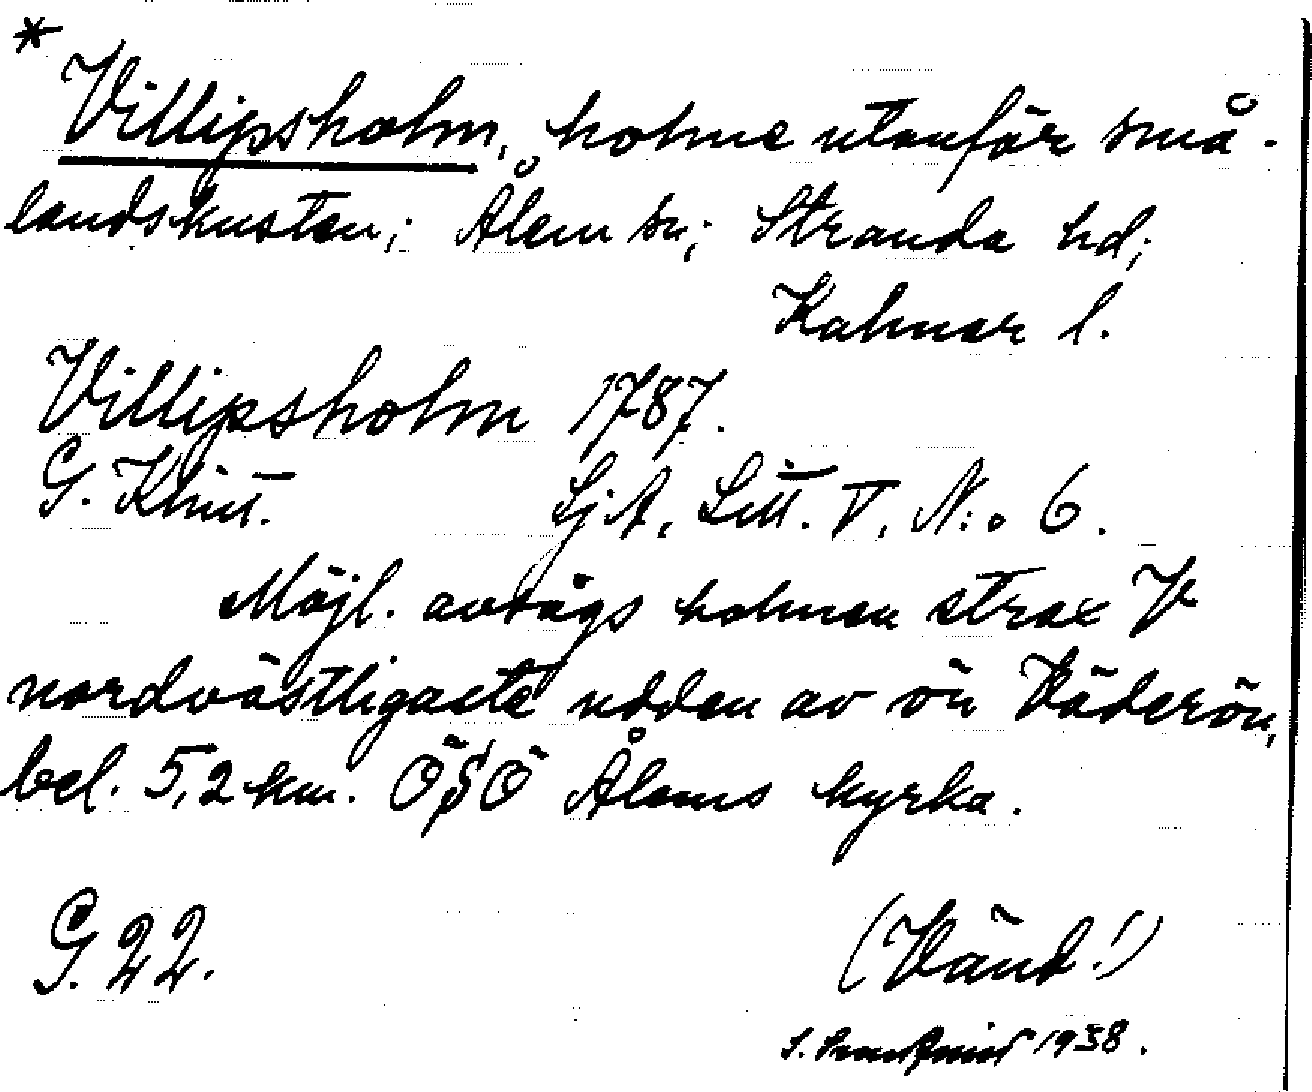 *
Villipsholm, holme utanför små-
landskusten; Ålem sn; Stranda hd;
Kalmar l.
Villipsholm 1787.
G. Klint. Sj A, Litt. V, N:o 6.
Möjl. avsågs holmen strax V
nordvästligaste udden av ön Väderön,
bel. 5,2 km. ÖSÖ Ålems kyrka.
G. 22. (Vänd!)
S. 1938.